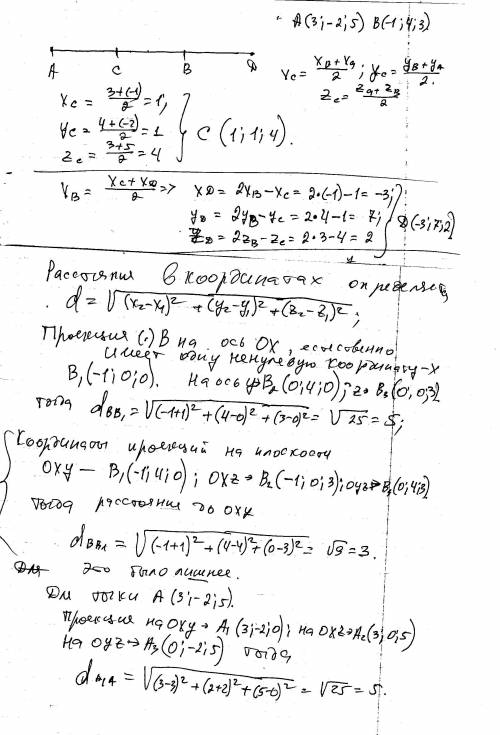 A(3;-2;5) B(-1;4;3)
A C B D
x_C = (x_B+x_A)/2; y_C = (y_B+y_A)/2.
z_C = (z_A+z_B)/2
x_C = (3+(-1))/2 = 1;
y_C = (4+(-2))/2 = 1 } C(1;1;4).
z_C = (3+5)/2 = 4
x_B = (x_C+x_D)/2 => x_D = 2x_B-x_C = 2·(-1)-1 = -3;
y_D = 2y_B-y_C = 2·4-1 = 7; } D(-3;7;2)
z_D = 2z_B-z_C = 2·3-4 = 2
Расстояния в координатах определяется
d = √((x₂-x₁)²+(y₂-y₁)²+(z₂-z₁)²);
Проекция (·) B на ось OX, естественно
имеет одну ненулевую координату-x
B₁(-1;0;0). На ось y B₂(0;4;0); z B₃(0;0;3)
тогда d_BB₁ = √((-1+1)²+(4-0)²+(3-0)²) = √25 = 5;
Координаты проекций на плоскости
OXY — B₁(-1;4;0); OXZ → B₂(-1;0;3); OYZ → B₃(0;4;3)
тогда расстояния до OXY
d_BB₁ = √((-1+1)²+(4-4)²+(0-3)²) = √9 = 3.
Это было лишнее.
Для точки A(3;-2;5).
Проекция на OXY → A₁(3;-2;0); на OXZ → A₂(3;0;5)
на OYZ → A₃(0;-2;5) тогда
d_A₁A = √((3-3)²+(2+2)²+(5-0)²) = √25 = 5.